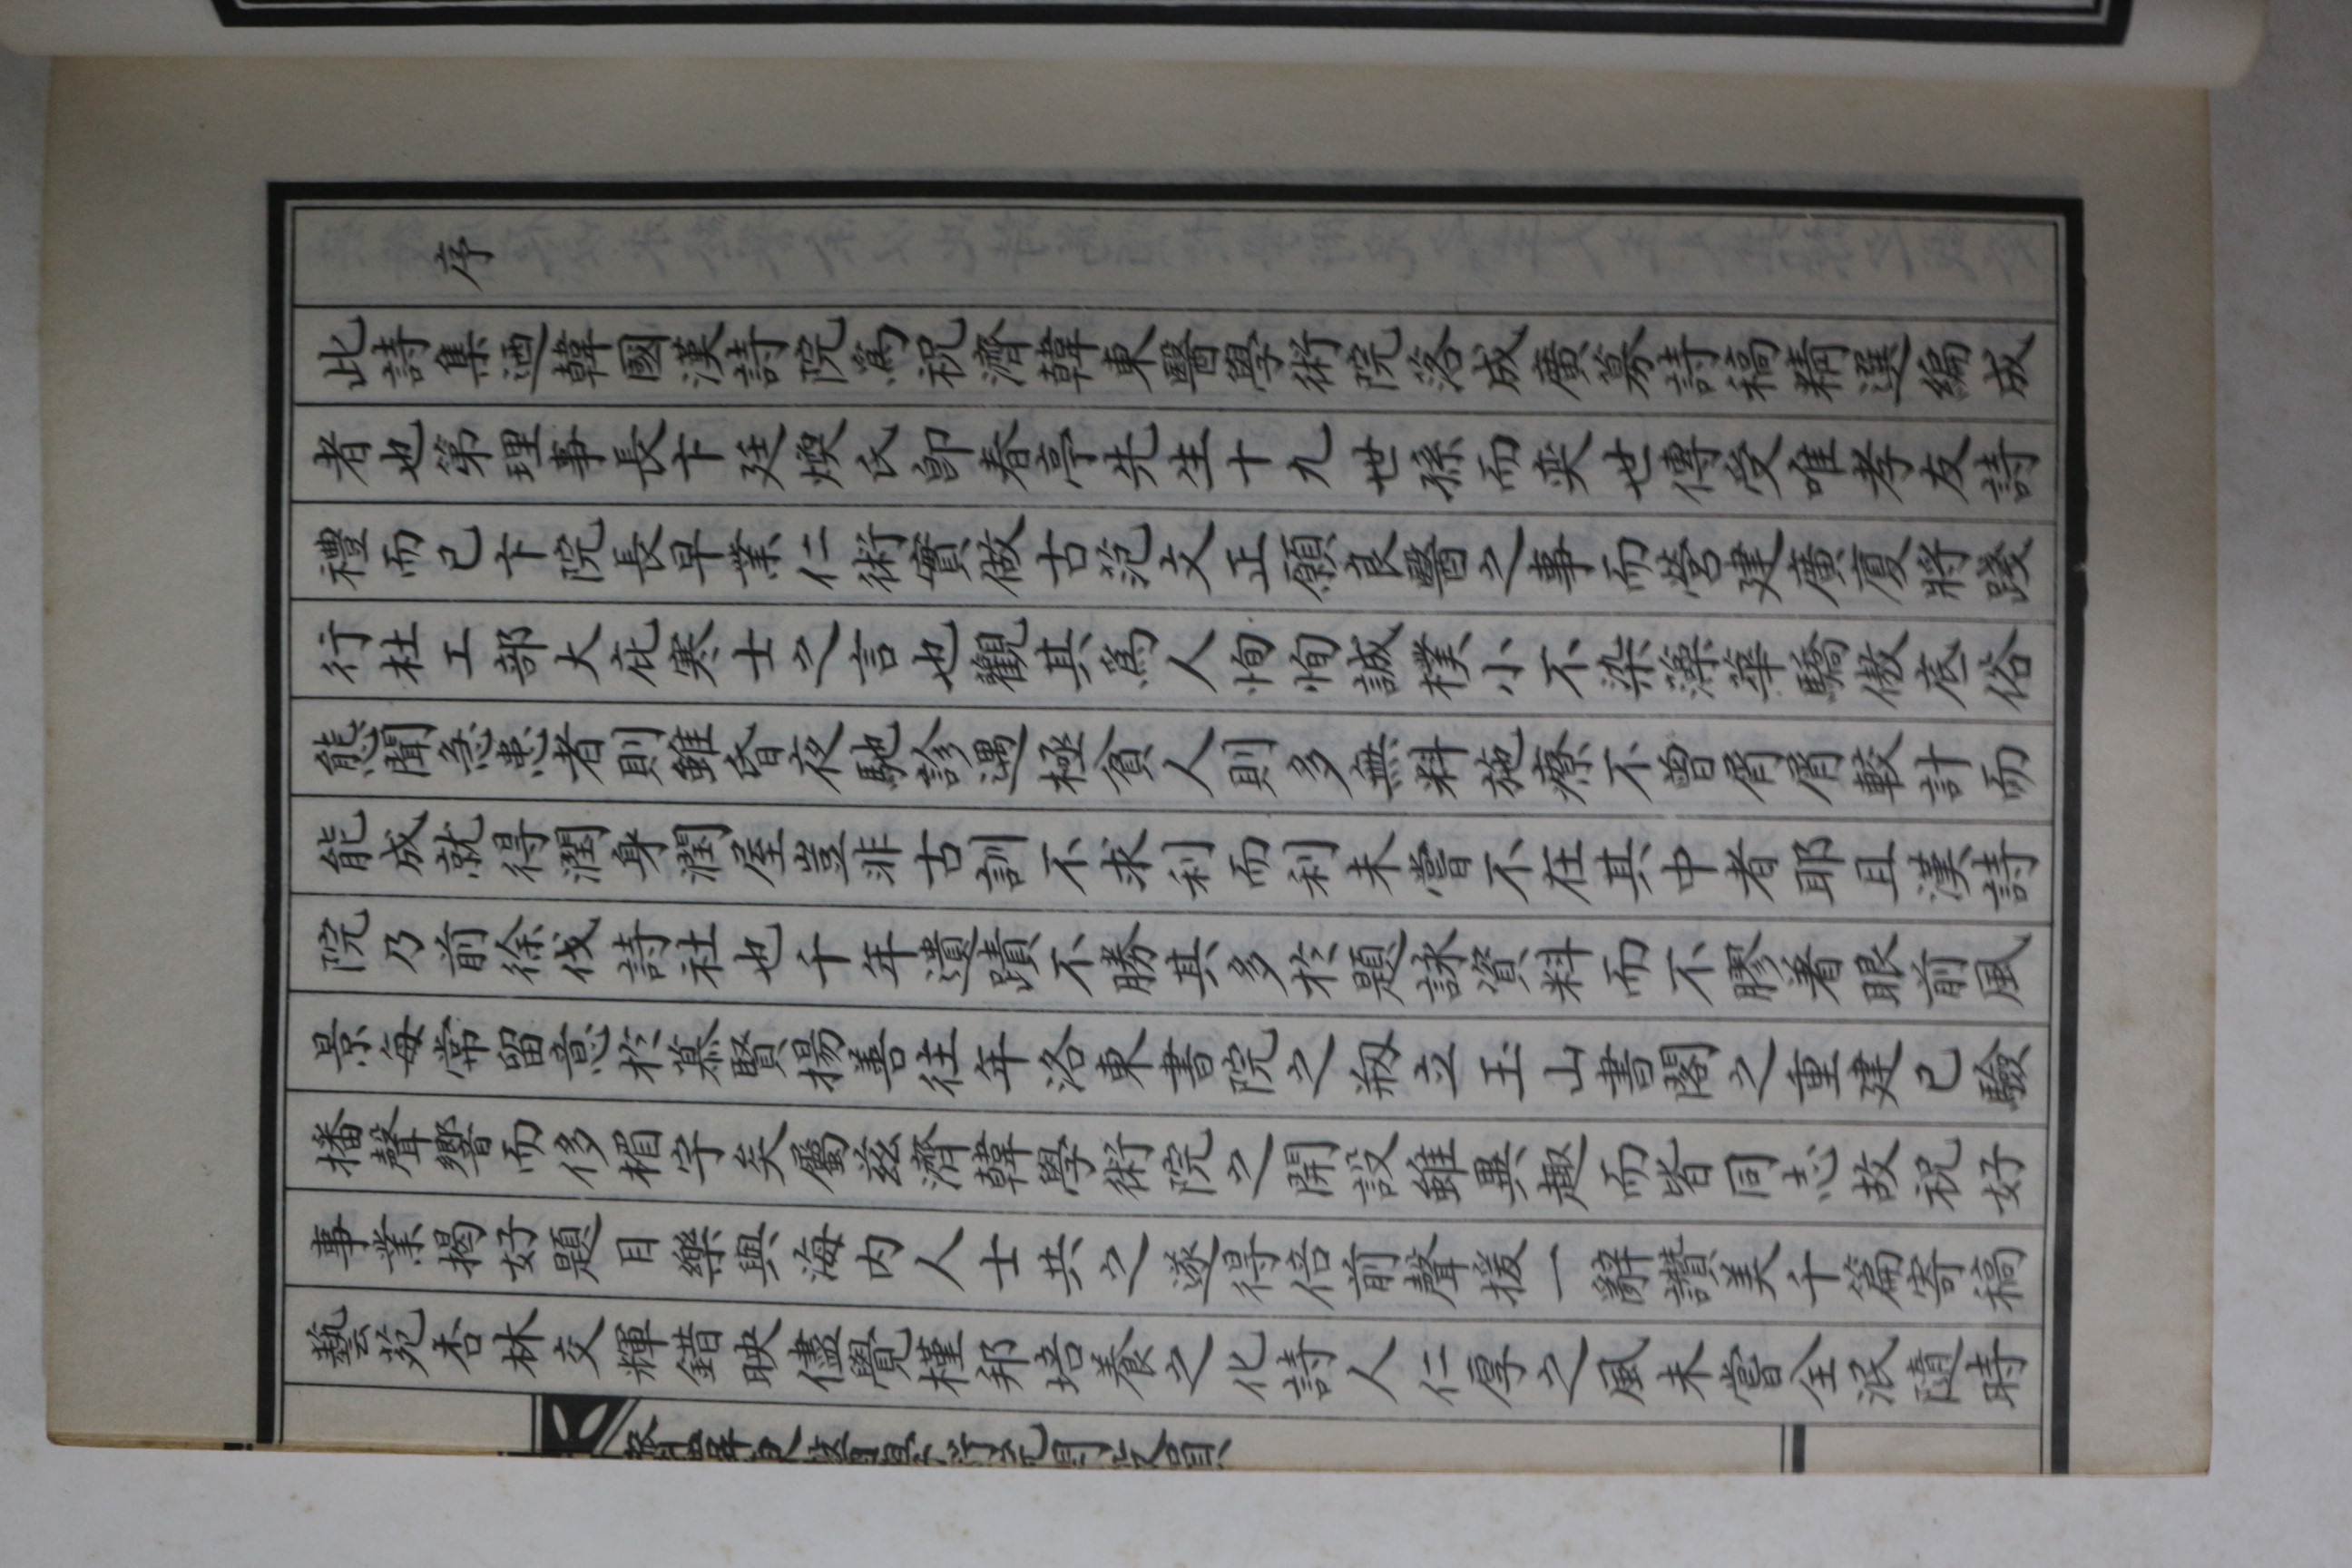 序
此詩集迺韓國漢詩院爲祝濟韓東醫學術院落成廣募詩稿精選編成
者也第理事長卞廷煥氏卽春亭先生十九世孫而奕世傳受唯孝友詩
禮而已卞院長早業仁術實倣古范文正願良醫之事而營建廣廈將踐
行杜工部大庇寒士之言也觀其爲人恂恂誠樸小不染澡華驕傲底俗
態聞急患者則雖昏夜馳診遇極貧人則多無料施療不曾屑屑較計而
能成就得潤身潤屋豈非古訓不求利而利未嘗不在其中者耶且漢詩
院乃前徐伐詩社也千年遺蹟不勝其多於題詠資料而不膠着眼前風
景每常留意於慕賢揚善往年洛東書院之刱立玉山書閣之重建已驗
播聲響而侈楣宇矣屬玆濟韓學術院之開設雖異趣而皆同志故祝好
事業揭好題目樂與海內人士共之遂得倍前聲援一辭讚美千篇寄稿
藝苑杏林交輝錯映儘覺槿邦培養之化詩人仁厚之風未嘗全泯隨時